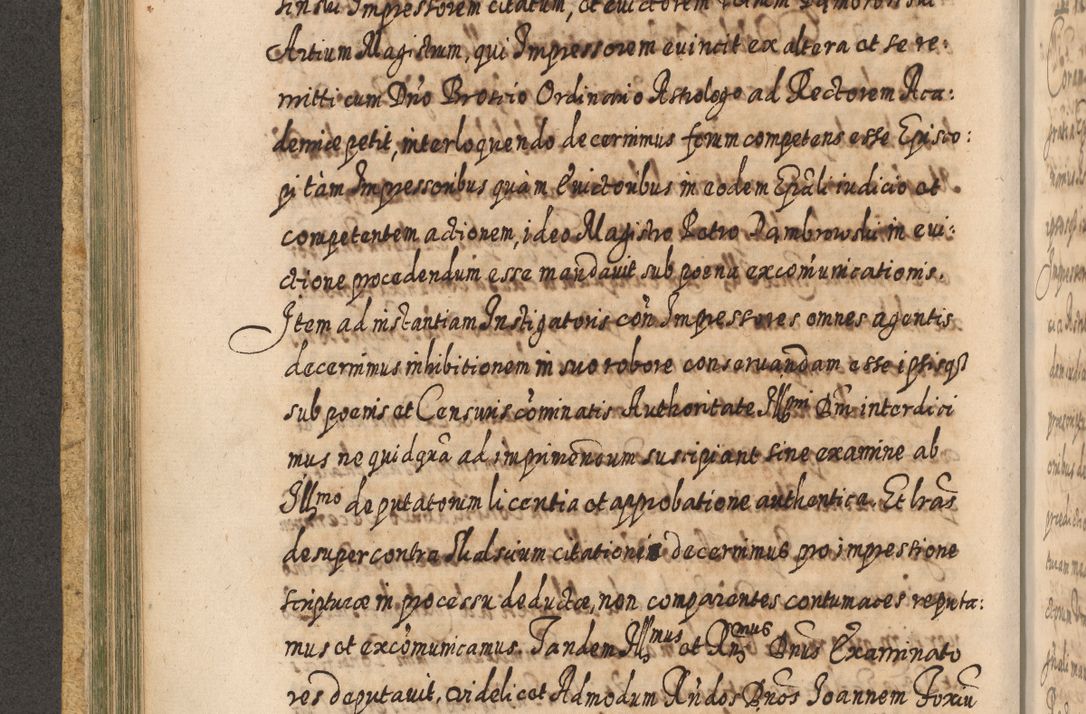 Impressorem citatum, et evictorem Dambrowski
Artium Magistrum, qui Impressorem evincit ex altera et se re:
mitti cum Dńo Broscio Ordinario Astrologo ad Rectorem Aca:
demiæ petit, interloquendo decernimus forum competens esse Episco:
pi tàm Impressoribus quàm Evictoribus in eodem Epāli iudicio et
competentem actionem, ideo Magistro Petro Dąmbrowski in evi:
ctione procedendum esse mandavit sub poena excom̃unicationis.
Item ad instantiam Instigatoris con̄ Impressores omnes agentis
decernimus inhibitionem in suo robore conservandam esse ipsisq3
sub poenis et Censuris com̃inatis Authoritate Illmi Dm̄ interdici
mus ne quidquā ad imprimendum suscipiant sine examine ab
Illmo deputatorum licentia et approbatione authentica. Et lrās
desuper contra citationis decernimus pro impressione
scripturæ in processu deductæ, non comparentes contumaces reputa:
mus et excom̃unicamus. Tandem Illmus et Rn̄dmus Dn̄us Examinato
res deputavit, videlicet Admodum Rn̄dos Dn̄os Ioannem Foxiū